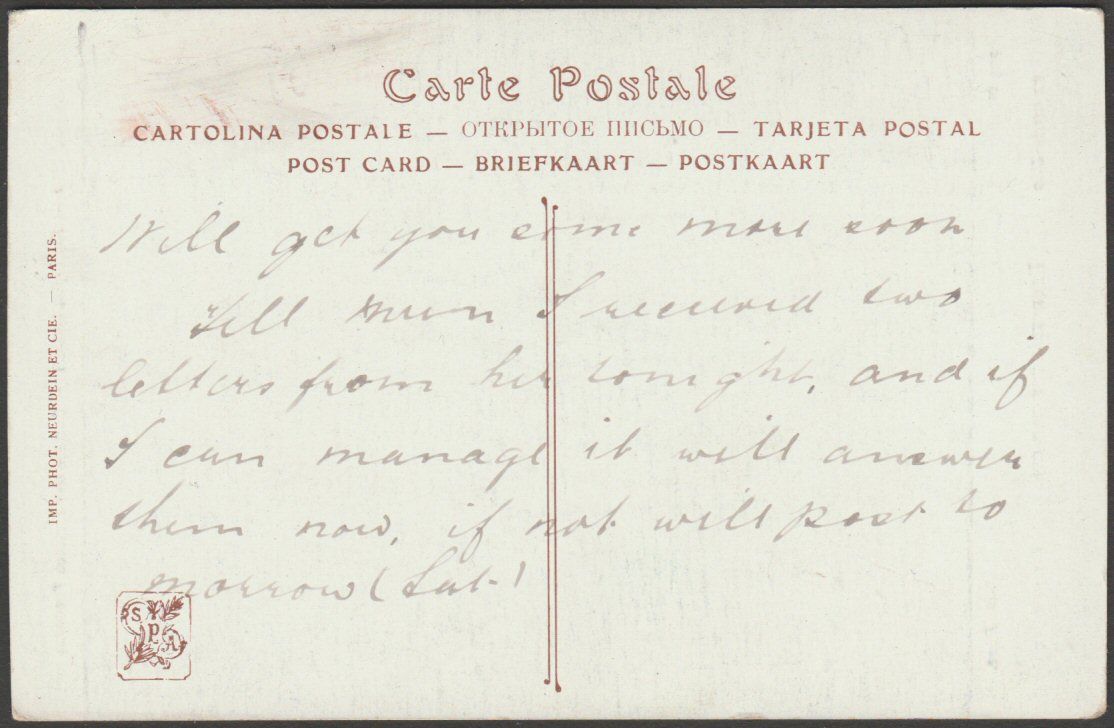 Carte Postale
CARTOLINA POSTALE — ОТКРЫТОЕ ПИСЬМО — TARJETA POSTAL
POST CARD — BRIEFKAART — POSTKAART
Will get you some more soon
Tell mum I received two
letters from her tonight, and if
I can manage it will answer
them now, if not will post to
morrow (Sat)
IMP. PHOT. NEURDEIN ET CIE. — PARIS.
S
P
A